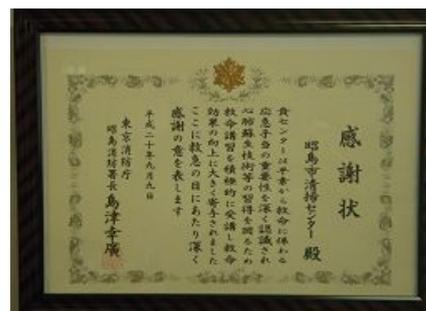 感謝状
昭島市清掃センター 殿
貴センターは平素から救命に係わる
応急手当の重要性を深く認識され
心肺蘇生技術等の習得を図るため
救命講習を積極的に受講し救命
効果の向上に大きく寄与されました
ここに救急の日にあたり深く
感謝の意を表します
平成二十年九月九日
東京消防庁
昭島消防署長 島津幸廣